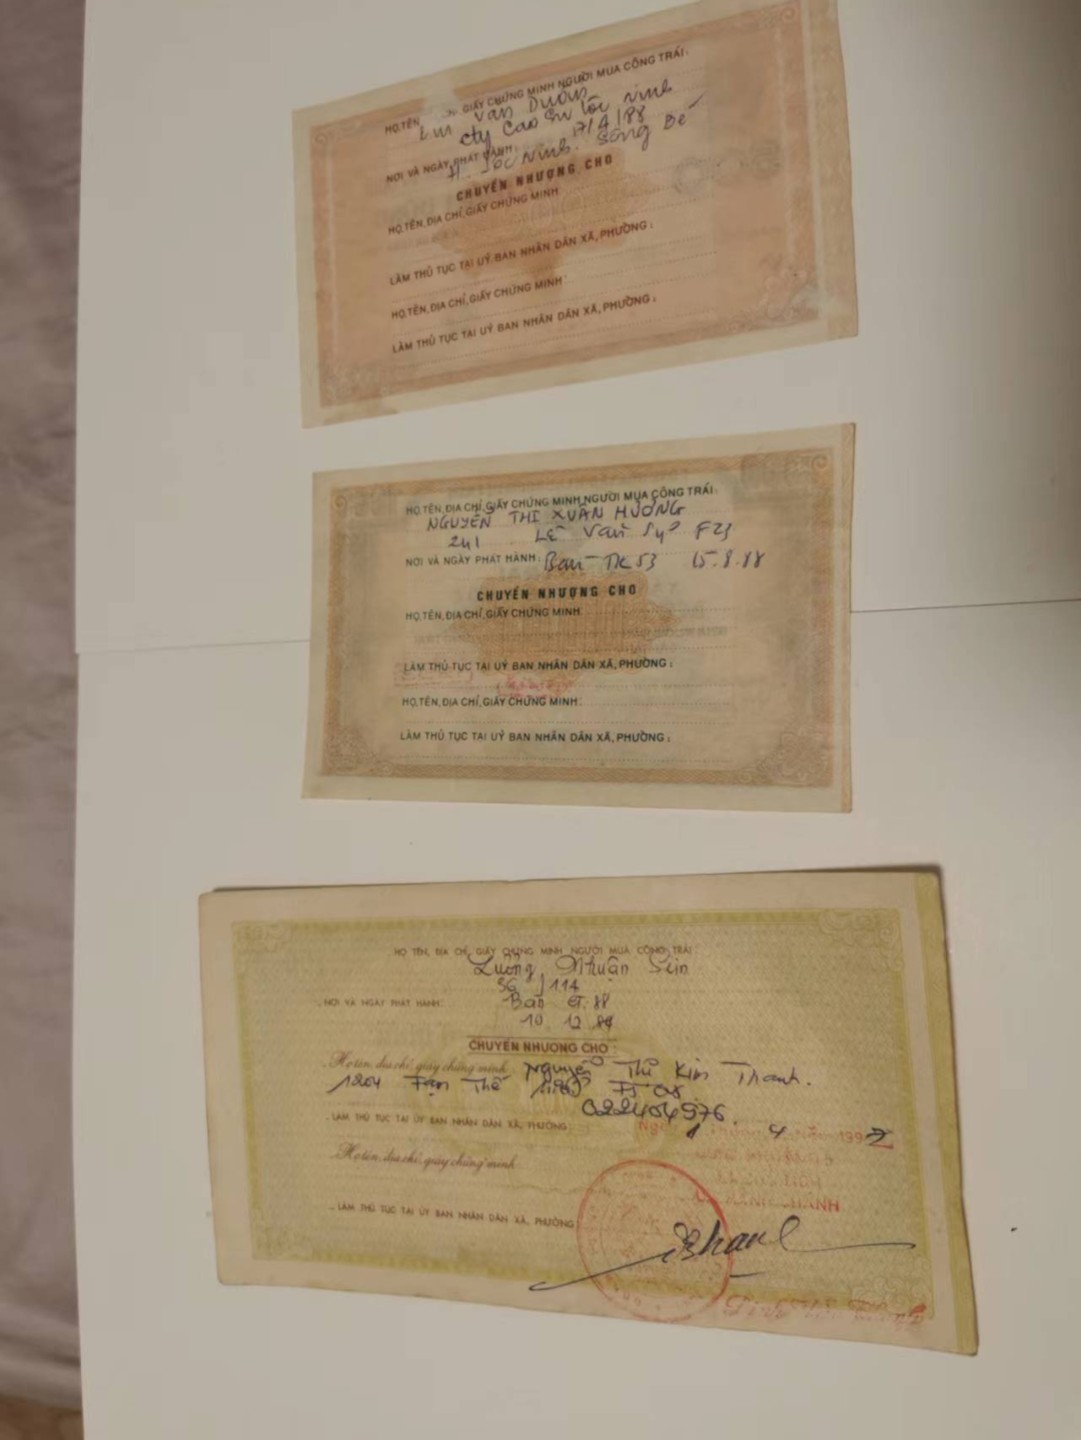 HỌ TÊN, GIẤY CHỨNG MINH NGƯỜI MUA CÔNG TRÁI:
Văn Dương
cty Cao Su Lộc Ninh
NƠI VÀ NGÀY PHÁT HÀNH: 17/4/88
H. Lộc Ninh. Sông Bé
CHUYỂN NHƯỢNG CHO
HỌ, TÊN, ĐỊA CHỈ, GIẤY CHỨNG MINH
LÀM THỦ TỤC TẠI UỶ BAN NHÂN DÂN XÃ, PHƯỜNG:
HỌ, TÊN, ĐỊA CHỈ, GIẤY CHỨNG MINH:
LÀM THỦ TỤC TẠI UỶ BAN NHÂN DÂN XÃ, PHƯỜNG:
HỌ, TÊN, ĐỊA CHỈ, GIẤY CHỨNG MINH NGƯỜI MUA CÔNG TRÁI:
NGUYỄN THỊ XUÂN HƯƠNG
241 Lê Văn Sỹ F23
NƠI VÀ NGÀY PHÁT HÀNH: Ban TK 53 15.8.88
CHUYỂN NHƯỢNG CHO
HỌ, TÊN, ĐỊA CHỈ, GIẤY CHỨNG MINH:
LÀM THỦ TỤC TẠI UỶ BAN NHÂN DÂN XÃ, PHƯỜNG:
HỌ, TÊN, ĐỊA CHỈ, GIẤY CHỨNG MINH:
LÀM THỦ TỤC TẠI UỶ BAN NHÂN DÂN XÃ, PHƯỜNG:
HỌ TÊN, ĐỊA CHỈ, GIẤY CHỨNG MINH NGƯỜI MUA CÔNG TRÁI
Lương Nhuận Sin
56 / 114
. NƠI VÀ NGÀY PHÁT HÀNH:
10 12
CHUYỂN NHƯỢNG CHO:
. Họ tên, địa chỉ, giấy chứng minh Nguyễn Thị Kim Thanh.
022404976.
. LÀM THỦ TỤC TẠI ỦY BAN NHÂN DÂN XÃ, PHƯỜNG:
4 1997
. Họ tên, địa chỉ, giấy chứng minh
. LÀM THỦ TỤC TẠI ỦY BAN NHÂN DÂN XÃ, PHƯỜNG